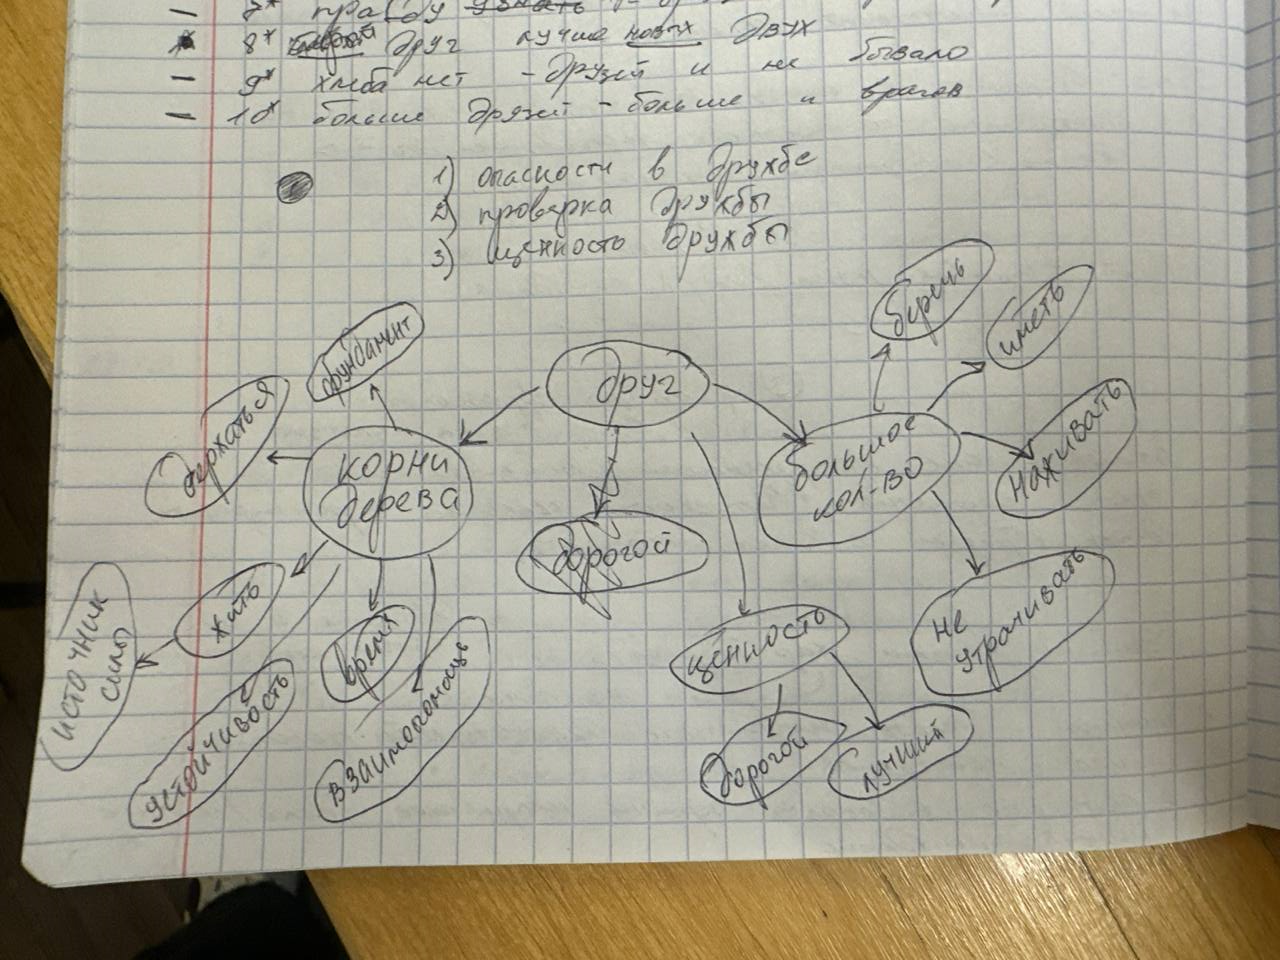 7* правду узнать
8* старый друг лучше новых двух
9* хлеба нет - друзей и не бывало
10* больше друзей - больше и врагов
1) опасности в дружбе
2) проверка дружбы
3) ценность дружбы
друг
корни
дерева
фундамент
держаться
жить
источник
силы
устойчивость
время
взаимопомощь
дорогой
большое
кол-во
беречь
иметь
наживать
не
утрачивать
ценность
дорогой
лучший